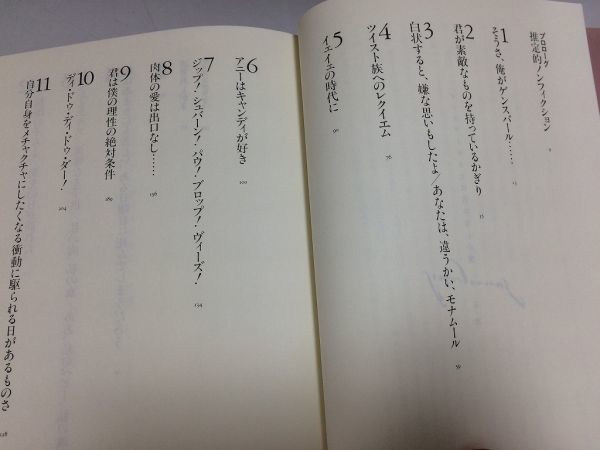 プロローグ
推定的ノンフィクション
1
そうさ、俺がゲンスバール……
2
君が素敵なものを持っているかぎり
15
3
白状すると、嫌な思いもしたよ／あなたは、違うかい、モナムール
59
4
ツイスト族へのレクイエム
76
5
イェイェの時代に
6
アニーはキャンディが好き
100
7
ジップ！シュバーン！パウ！ブロップ！ヴィーズ！
134
8
肉体の愛は出口なし……
156
9
君は僕の理性の絶対条件
189
10
ディ・ドゥ・ディ・ドゥ・ダー！
204
11
自分自身をメチャクチャにしたくなる衝動に駆られる日があるものさ